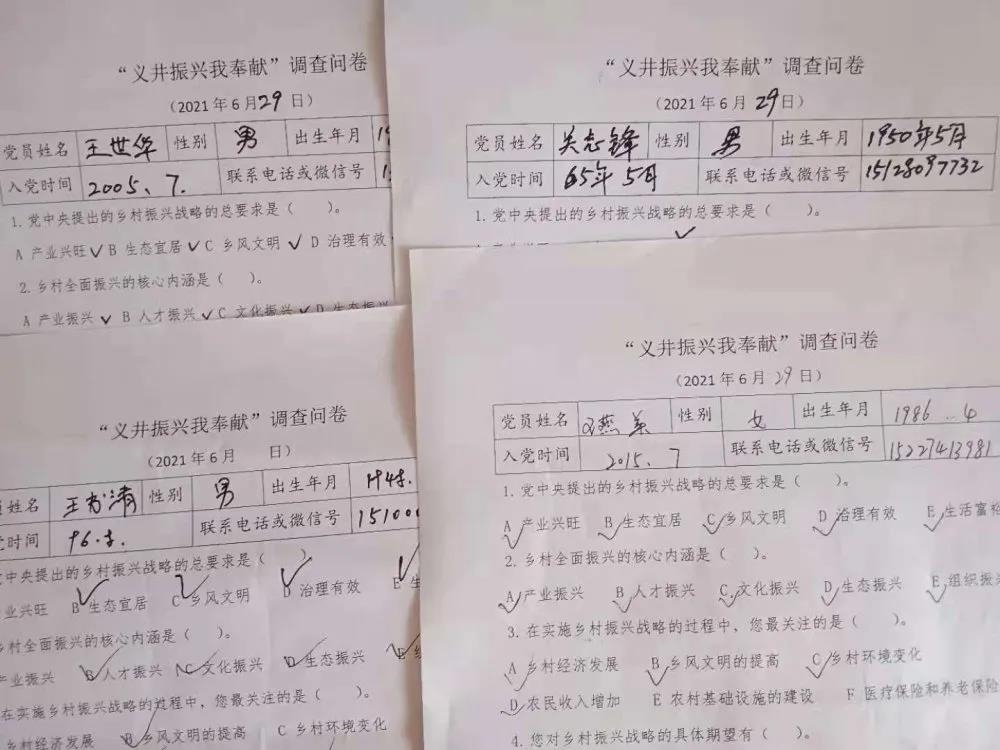 “义井振兴我奉献”调查问卷
（2021 年 6 月 29 日）
党员姓名 王世华 性别 男 出生年月
入党时间 2005、7. 联系电话或微信号
1. 党中央提出的乡村振兴战略的总要求是（ ）。
A 产业兴旺 ✓ B 生态宜居 ✓ C 乡风文明 ✓ D 治理有效
2. 乡村全面振兴的核心内涵是（ ）。
A 产业振兴 ✓ B 人才振兴 ✓ C 文化振兴 ✓ D 生态振兴
“义井振兴我奉献”调查问卷
（2021 年 6 月 29 日）
党员姓名 关志锋 性别 男 出生年月 1950年5月
入党时间 65年5月 联系电话或微信号 15128097732
1. 党中央提出的乡村振兴战略的总要求是（ ）。
“义井振兴我奉献”调查问卷
（2021 年 6 月 日）
员姓名 王书清 性别 男 出生年月 1948.
党时间 96. 联系电话或微信号 151000
党中央提出的乡村振兴战略的总要求是（ ）。
业兴旺 B 生态宜居 C 乡风文明 D 治理有效 E 生
乡村全面振兴的核心内涵是（ ）。
产业振兴 B 人才振兴 C 文化振兴 D 生态振兴 E 组
在实施乡村振兴战略的过程中，您最关注的是（ ）。
乡村经济发展 B 乡风文明的提高 C 乡村环境变化
“义井振兴我奉献”调查问卷
（2021 年 6 月 29 日）
党员姓名 燕 性别 女 出生年月 1986..4
入党时间 2015、7 联系电话或微信号 15227413981
1. 党中央提出的乡村振兴战略的总要求是（ ）。
A 产业兴旺 B 生态宜居 C 乡风文明 D 治理有效 E 生活富裕
2. 乡村全面振兴的核心内涵是（ ）。
A 产业振兴 B 人才振兴 C 文化振兴 D 生态振兴 E 组织振兴
3. 在实施乡村振兴战略的过程中，您最关注的是（ ）。
A 乡村经济发展 B 乡风文明的提高 C 乡村环境变化
D 农民收入增加 E 农村基础设施的建设 F 医疗保险和养老保险
4. 您对乡村振兴战略的具体期望有（ ）。